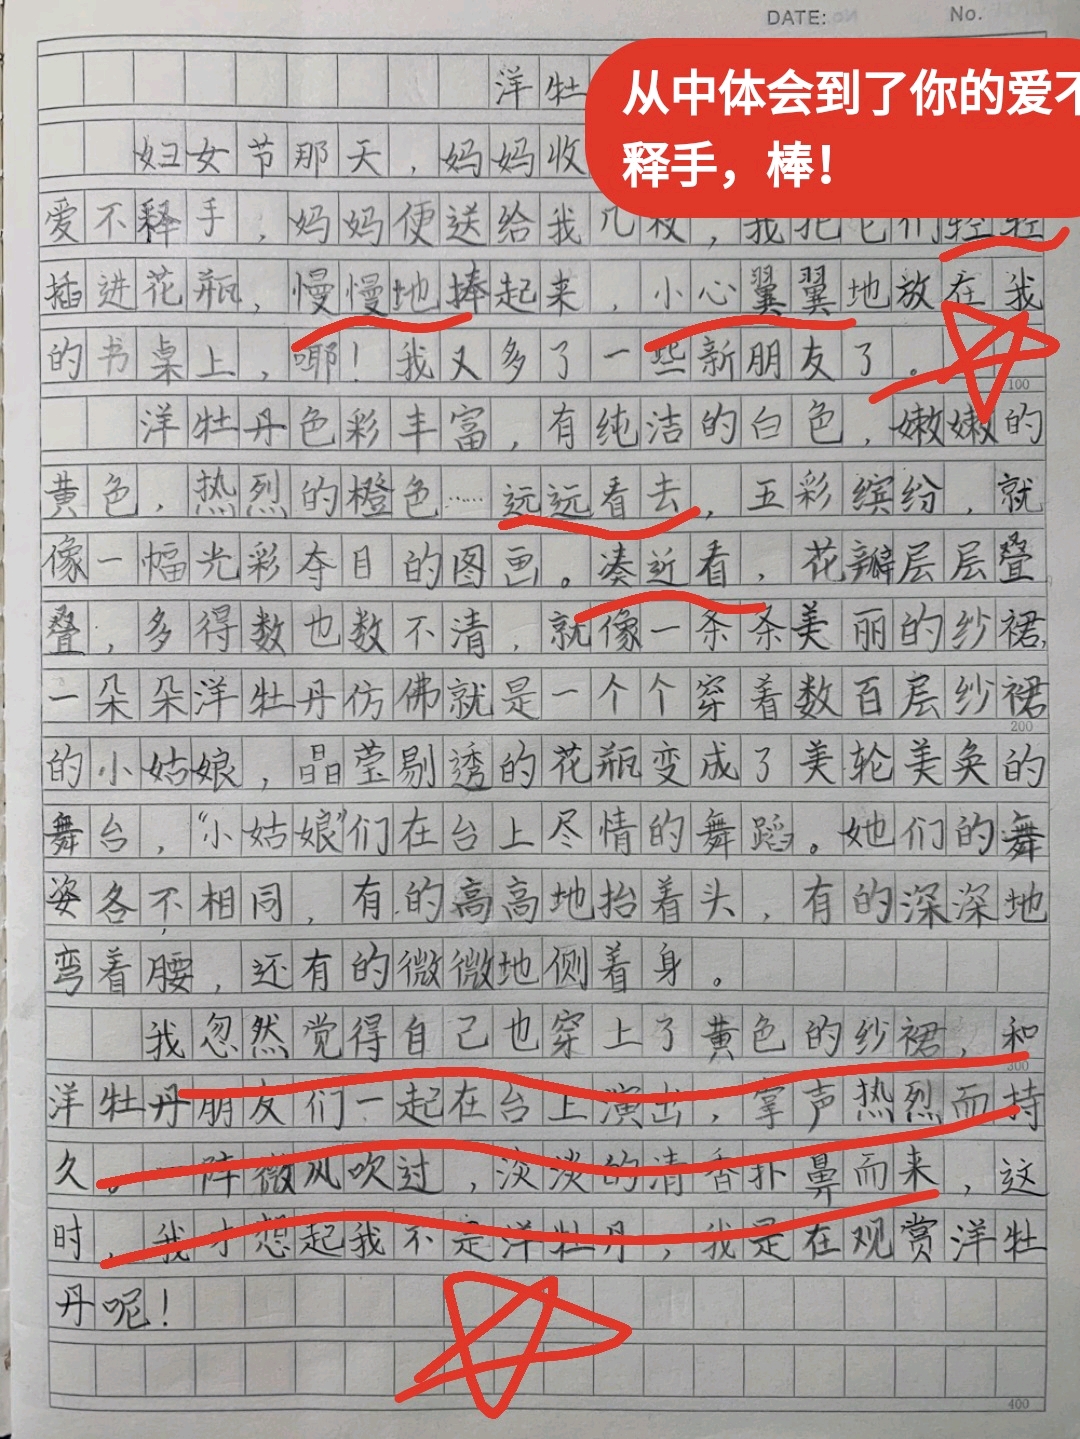 DATE:
No.
从中体会到了你的爱不
释手，棒！
洋牡
妇女节那天，妈妈收
爱不释手，妈妈便送给我几枝，我把它们轻轻
插进花瓶，慢慢地捧起来，小心翼翼地放在我
的书桌上，嘢！我又多了一些新朋友了。
100
洋牡丹色彩丰富，有纯洁的白色，嫩嫩的
黄色，热烈的橙色……远远看去，五彩缤纷，就
像一幅光彩夺目的图画。凑近看，花瓣层层叠
叠，多得数也数不清，就像一条条美丽的纱裙，
一朵朵洋牡丹仿佛就是一个个穿着数百层纱裙
200
的小姑娘，晶莹剔透的花瓶变成了美轮美奂的
舞台，“小姑娘”们在台上尽情的舞蹈。她们的舞
姿各不相同，有的高高地抬着头，有的深深地
弯着腰，还有的微微地侧着身。
我忽然觉得自己也穿上了黄色的纱裙，和
300
洋牡丹朋友们一起在台上演出，掌声热烈而持
久。一阵微风吹过，淡淡的清香扑鼻而来，这
时，我才想起我不是洋牡丹，我是在观赏洋牡
丹呢！
400